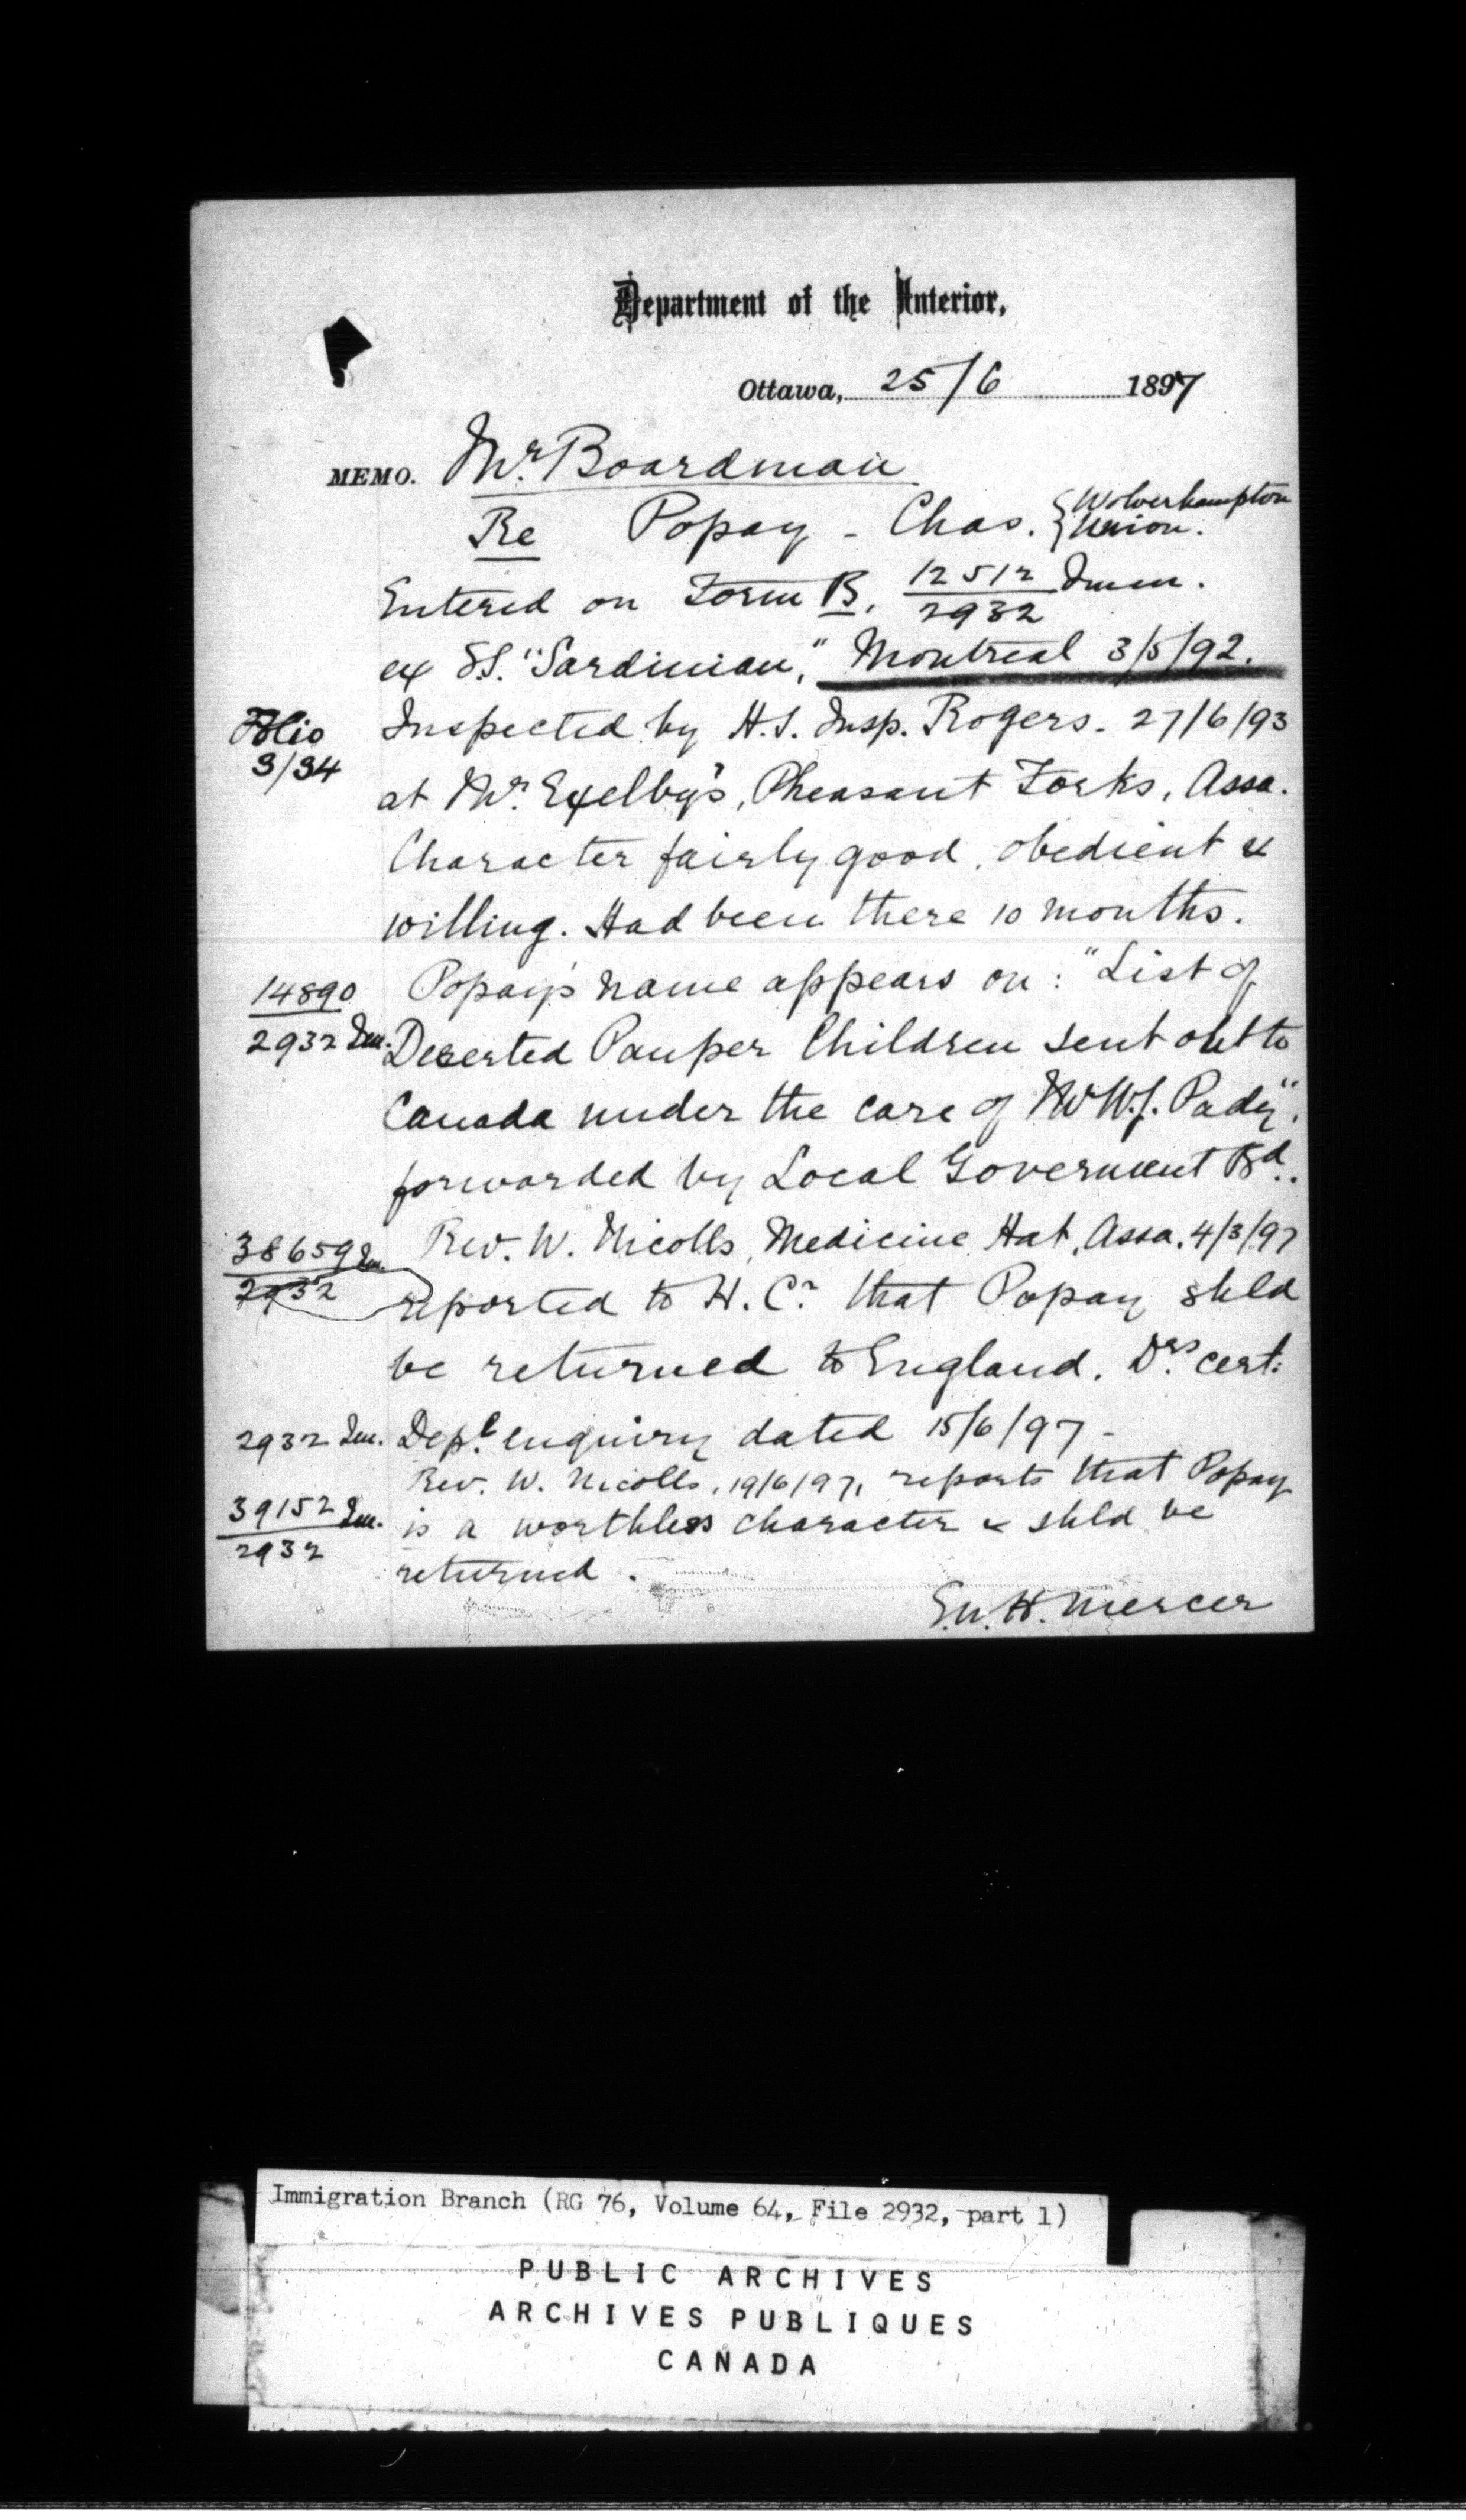 Department of the Interior,
Ottawa, 25/6 1897
MEMO. Mr. Boardman
Re Popay - Chas. { Wolverhampton
Union.
Entered on Form B, 12512/2932 Imm.
ex SS. "Sardinian," Montreal 3/5/92.
Folio
3/34
Inspected by H.S. Insp. Rogers. 27/6/93
at Mr. Exelby's, Pheasant Forks, Assa.
Character fairly good, obedient &
willing. Had been there 10 months.
14890
2932 Im.
Popay's name appears on: "List of
Deserted Pauper Children sent out to
Canada under the care of Mr W.J. Pady",
forwarded by Local Government Bd..
38659 Im.
2932
Rev. W. Nicolls, Medicine Hat, Assa. 4/3/97
reported to H. Cr. that Popay shld
be returned to England. Drs cert:
2932 Im. Deptl enquiry dated 15/6/97 -
39152 Im.
2932
Rev. W. Nicolls, 19/6/97, reports that Popay
is a worthless character & shld be
returned.
E.W.H. Mercer
Immigration Branch (RG 76, Volume 64, File 2932, part 1)
PUBLIC ARCHIVES
ARCHIVES PUBLIQUES
CANADA